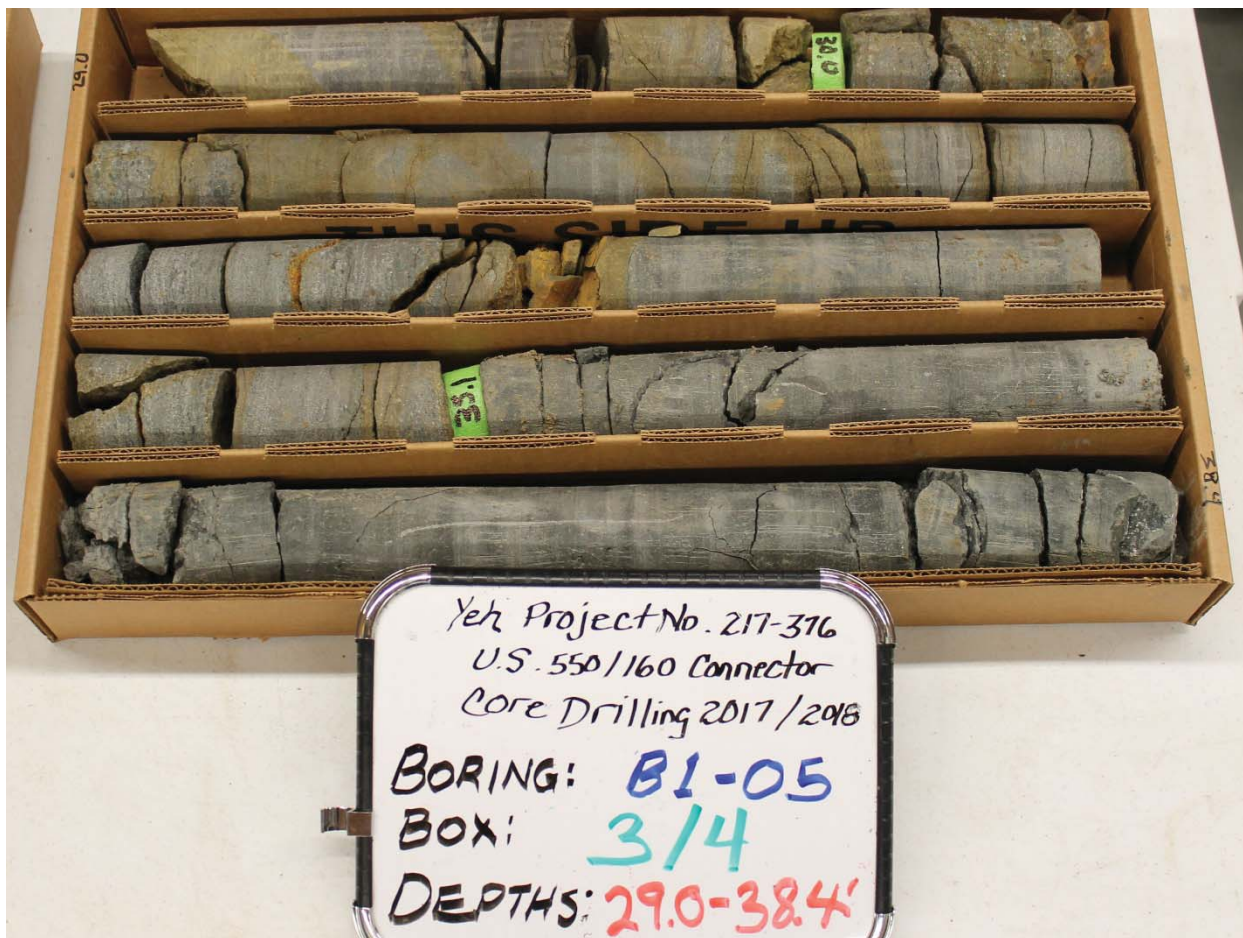 29.0
30.0
THIS SIDE UP
35.1
38.4
Yeh Project No. 217-376
U.S. 550/160 Connector
Core Drilling 2017/2018
BORING: B1-05
BOX: 3/4
DEPTHS: 29.0-38.4'